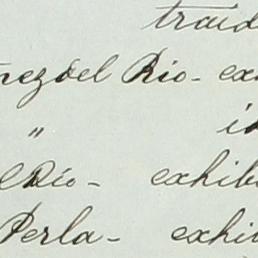 traid
nez del Rio- ex
" i
el Rio- exhib
Perla- exhi